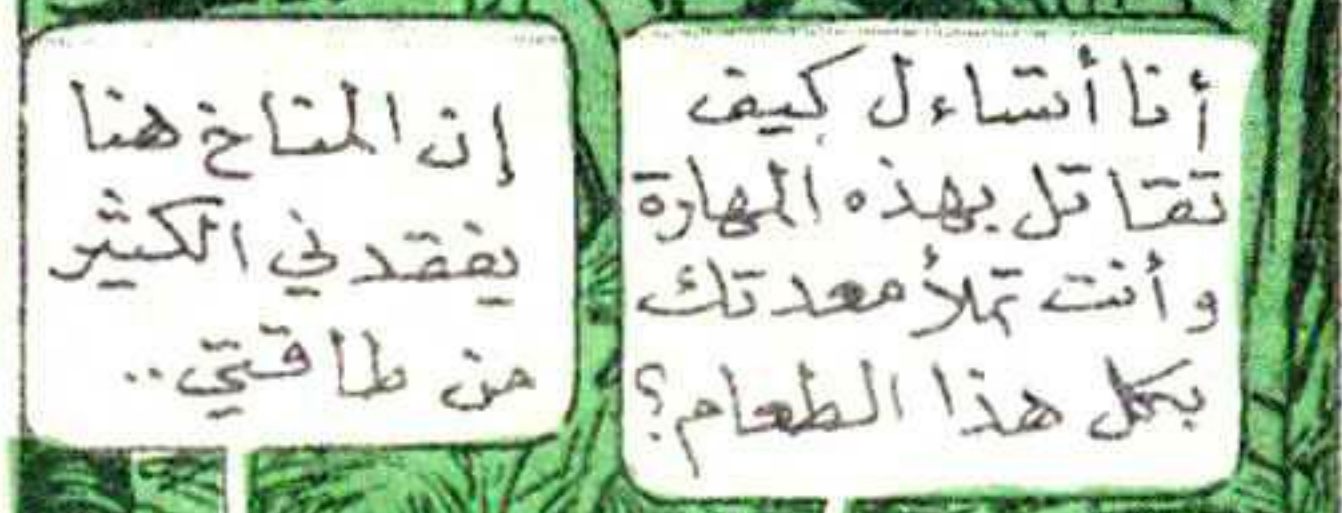 أنا أتساءل كيف
تقاتل بهذه المهارة
وأنت تملأ معدتك
بكل هذا الطعام؟
إن المناخ هنا
يفقدني الكثير
من طاقتي..